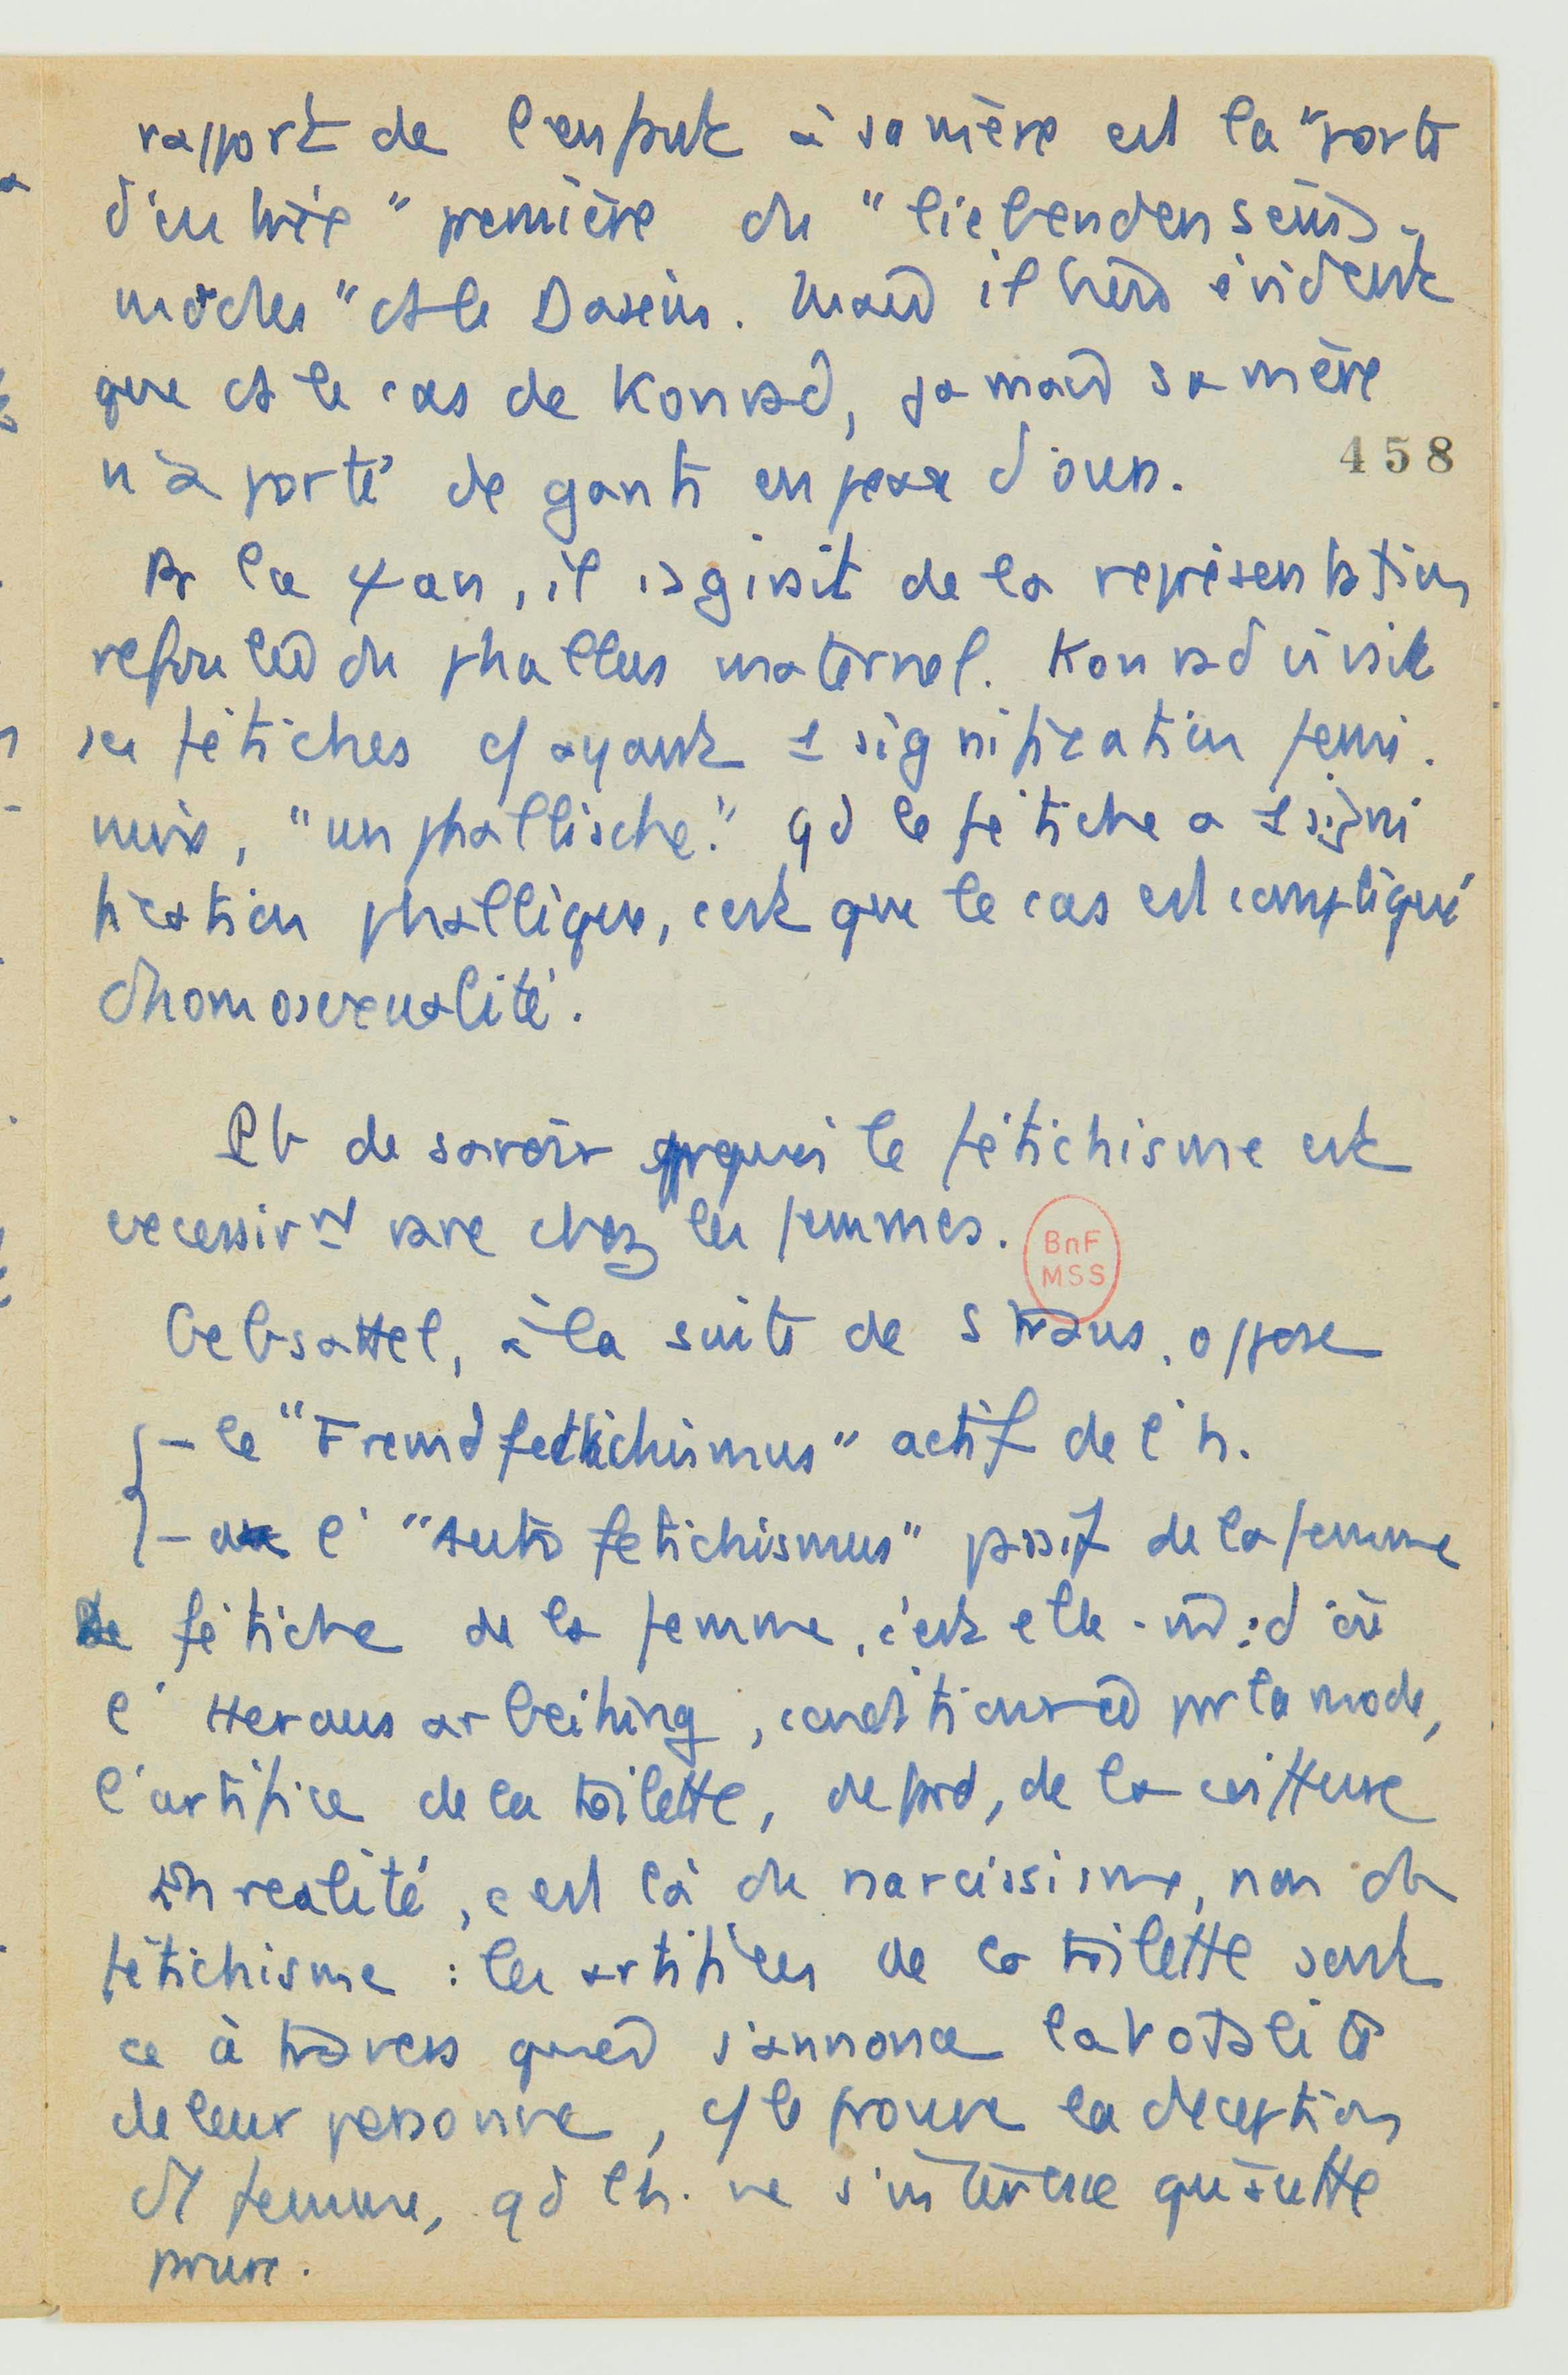 rapport de l'enfant à sa mère est la "porte
d'entrée" première du "liebenden Seins-
modus" ds le Dasein. Mais il est évident
que ds le cas de Konrad, jamais sa mère
n'a porté de gants en peau d'ours.
458
Pr la ψan, il s'agirait de la représentation
refoulée du phallus maternel. Konrad avait
ses fétiches c/ ayant 1 signification fémi-
nine, "unphallische". qd le fétiche a 1 signi
fication phallique, c'est que le cas est compliqué
d'homosexualité.
Pb de savoir pquoi le fétichisme est
excessivmt rare chez les femmes.
BnF
MSS
Gebsattel, à la suite de Straus, oppose
- le "Fremdfetichismus" actif de l'h.
- à l' "Auto fetichismus" passif de la femme
Le fétiche de la femme, c'est elle-m̂ : d'où
l'Herausarbeitung, conditionnée pr la mode,
l'artifice de la toilette, de fard, de la coiffure
En réalité, c'est là du narcissisme, non du
fétichisme : les artifices de la toilette sont
ce à travers quoi s'annonce la totalité
de leur personne, c/ le prouve la déception
d'1 femme, qd l'h. ne s'intéresse qu'à cette
parure.